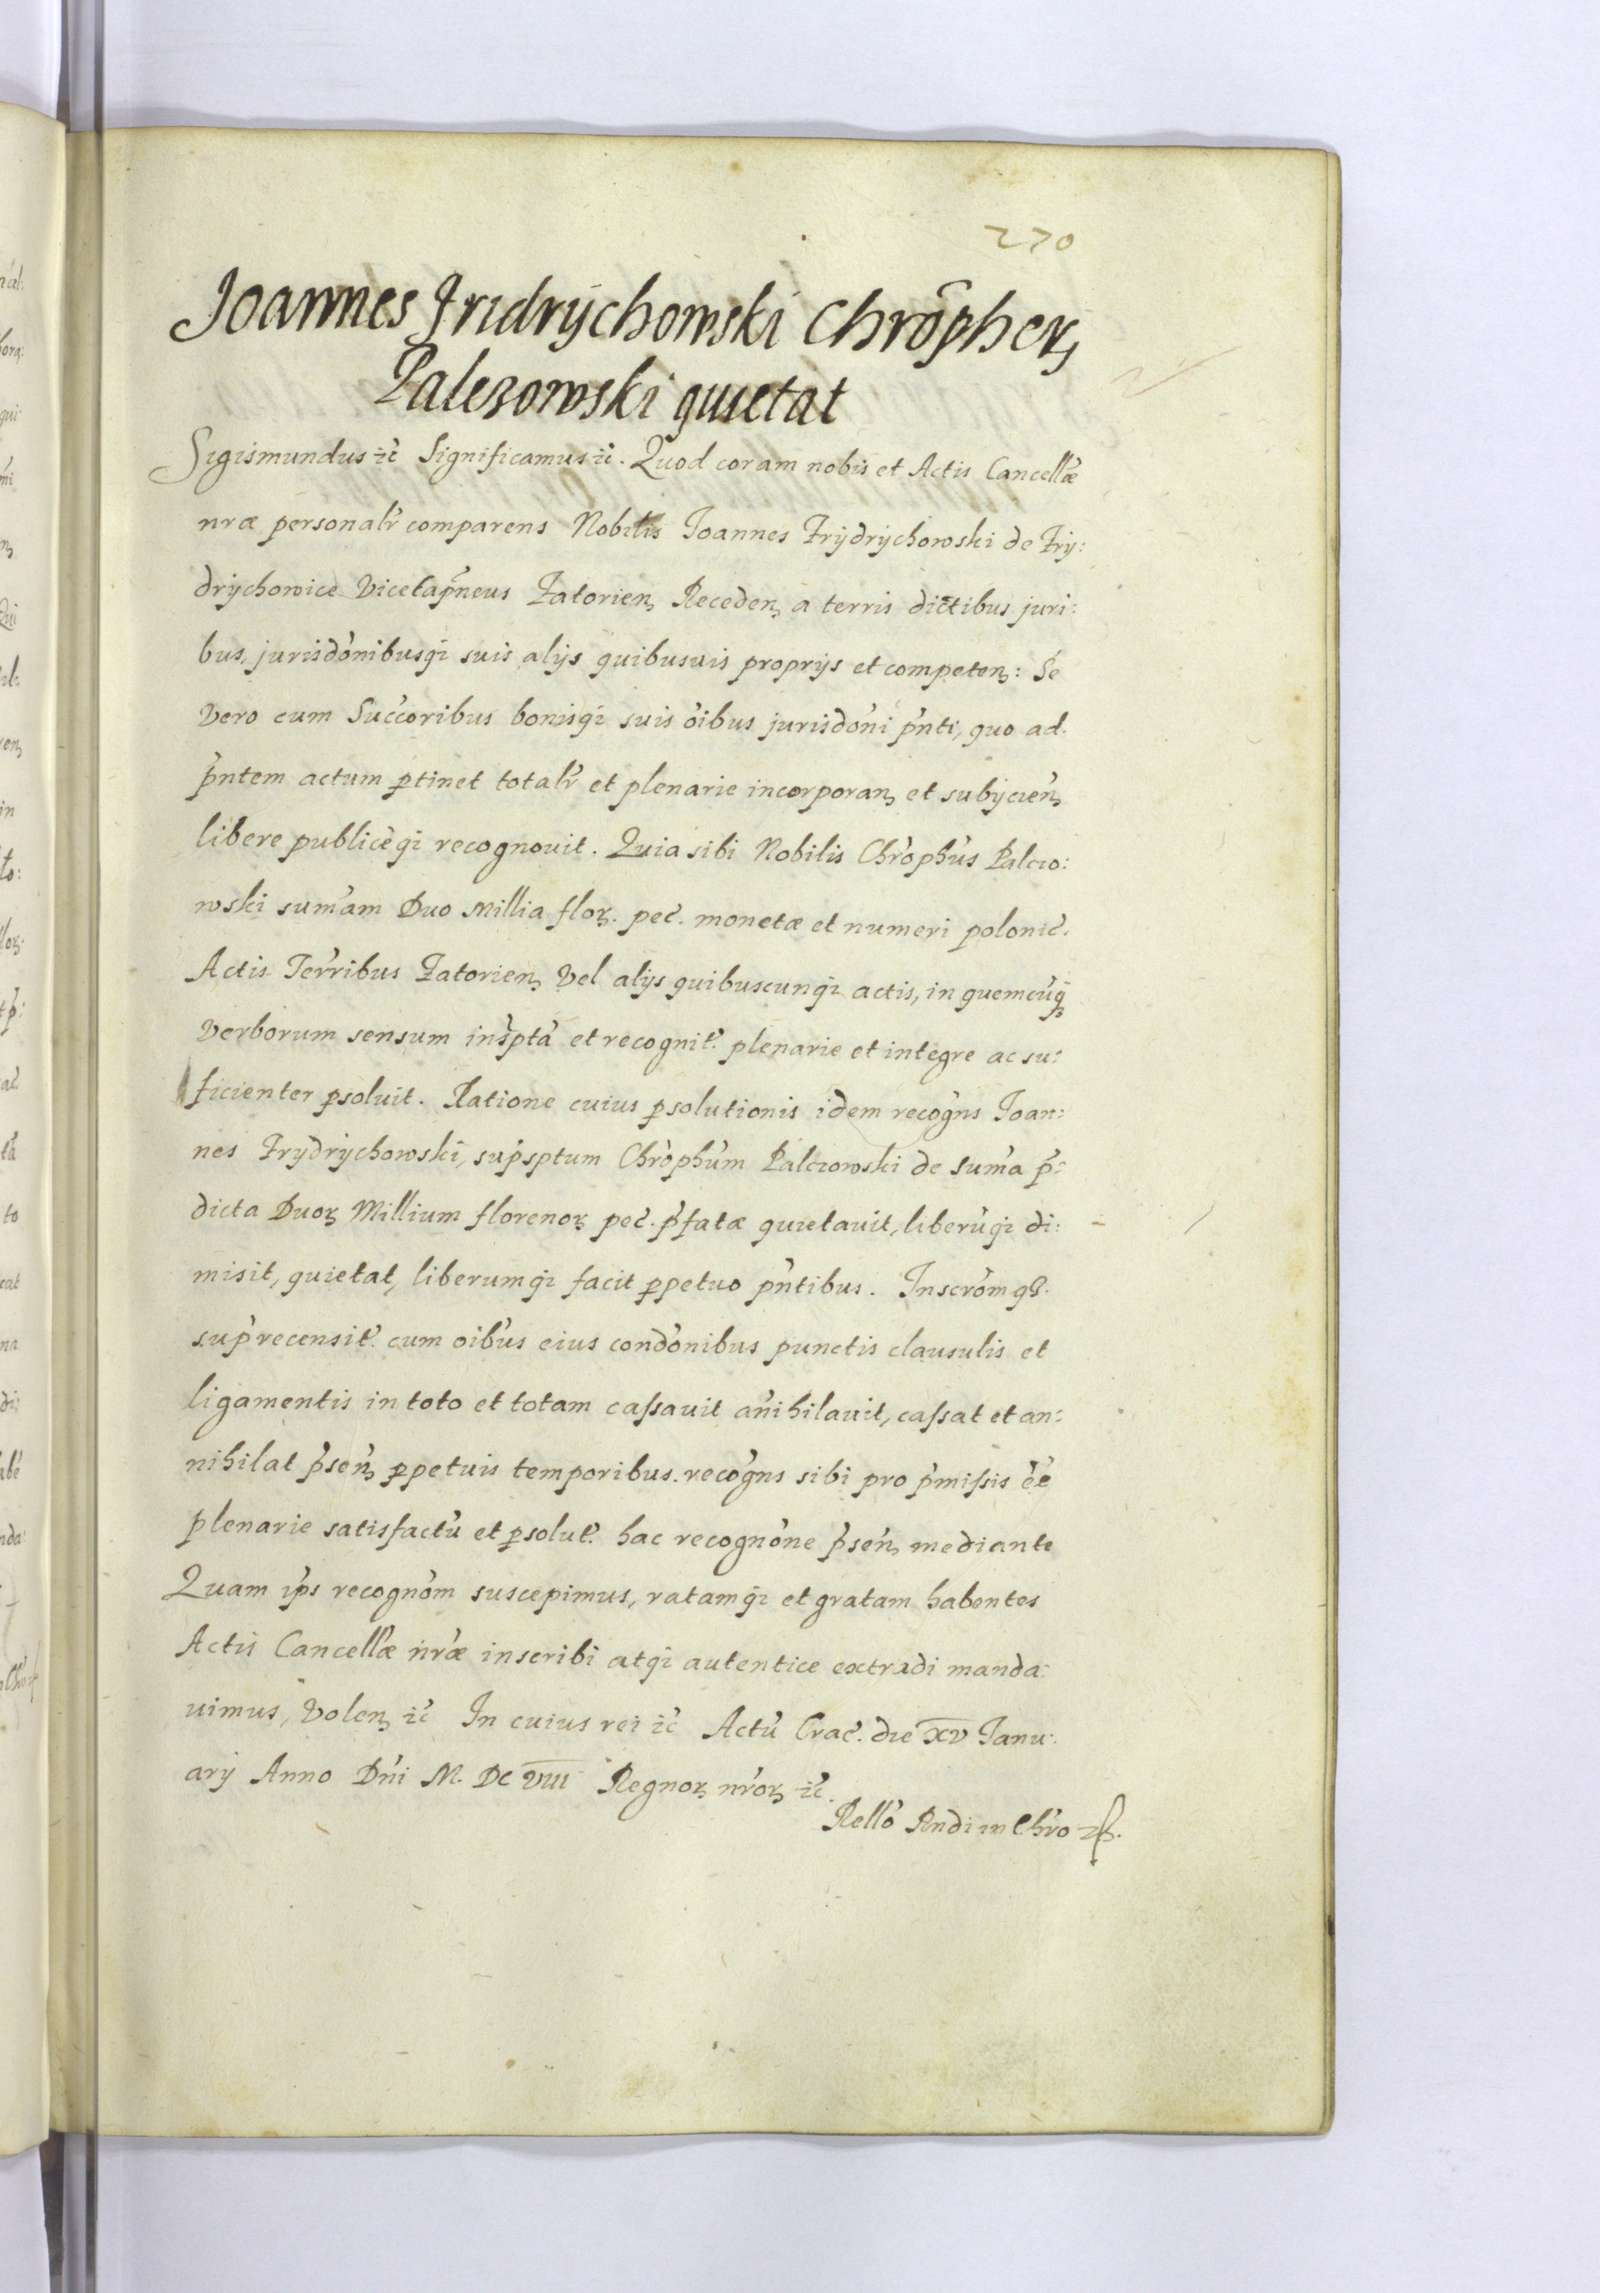 270
Joannes Fridrÿchowski Chrõpherꝫ
Palczowski quietat
Sigismundus ꝛc̃ Significamus ꝛc̃. Quod coram nobis et Actis Cancellæ̃
nræ personalr̃ comparens Nobilis Joannes Frÿdrÿchowski de Frÿ:
drÿchowice Vicecap̃neus Zatorienꝫ Recedenꝫ a terris dictibus juri:
bus, jurisdõnibusqꝫ suis alijs quibusuis proprijs et competenꝫ: Se
Vero cum Succ̃oribus bonisqꝫ suis õibus jurisdõni p̃nti, quo ad.
p̃ntem actum ꝑtinet totalr̃ et plenarie incorporanꝫ et subijcien̾ꝫ
libere publicèqꝫ recognouit. Quia sibi Nobilis Chrõphũs Palczo:
wski sum̃am Duo Millia floꝝ. pec̃. monetæ et numeri polonic̃.
Actis Ter̃ribus Zatorienꝫ Vel alijs quibuscunqꝫ actis, in quemcũqꝫ
Verborum sensum ins̃ptã et recognit̃. plenarie et integre ac su:
ficienter ꝑsoluit. Ratione cuius ꝑsolutionis idem recog̃ns Joan:
nes Frÿdrÿchowski, sup̃sptum Chrõphũm Palczowski de sum̃a p̃:
dicta Duoꝝ Millium florenoꝝ pec̃. p̃fatæ quietauit, liberũqꝫ di:
misit, quietat, liberumqꝫ facit ꝑpetuo p̃ntibus. Inscrõm
sup̃recensit̃. cum oib̃us eius condõnibus punctis clausulis et
ligamentis in toto et totam caſsauit añihilauit, caſsat et an:
nihilat p̃sen̾ꝫ ꝑpetuis temporibus. recog̃ns sibi pro p̃miſsis ẽẽ
plenarie satisfactũ et ꝑsolut̃. hac recognõne p̃sen̾ꝫ mediante
Quam ip̃s recognõm suscepimus, ratamqꝫ et gratam habentes
Actis Cancellæ̃ nr̃æ inscribi atqꝫ autentice extradi manda:
uimus, Volenꝫ ꝛc̃ In cuius rei ꝛc̃ Actũ Crac̃. die XV Janu:
arij Anno Dñi M. DC VIII Regnoꝝ nr̃oꝝ ꝛc̃.
Rellõ Rndi in Chr̃o